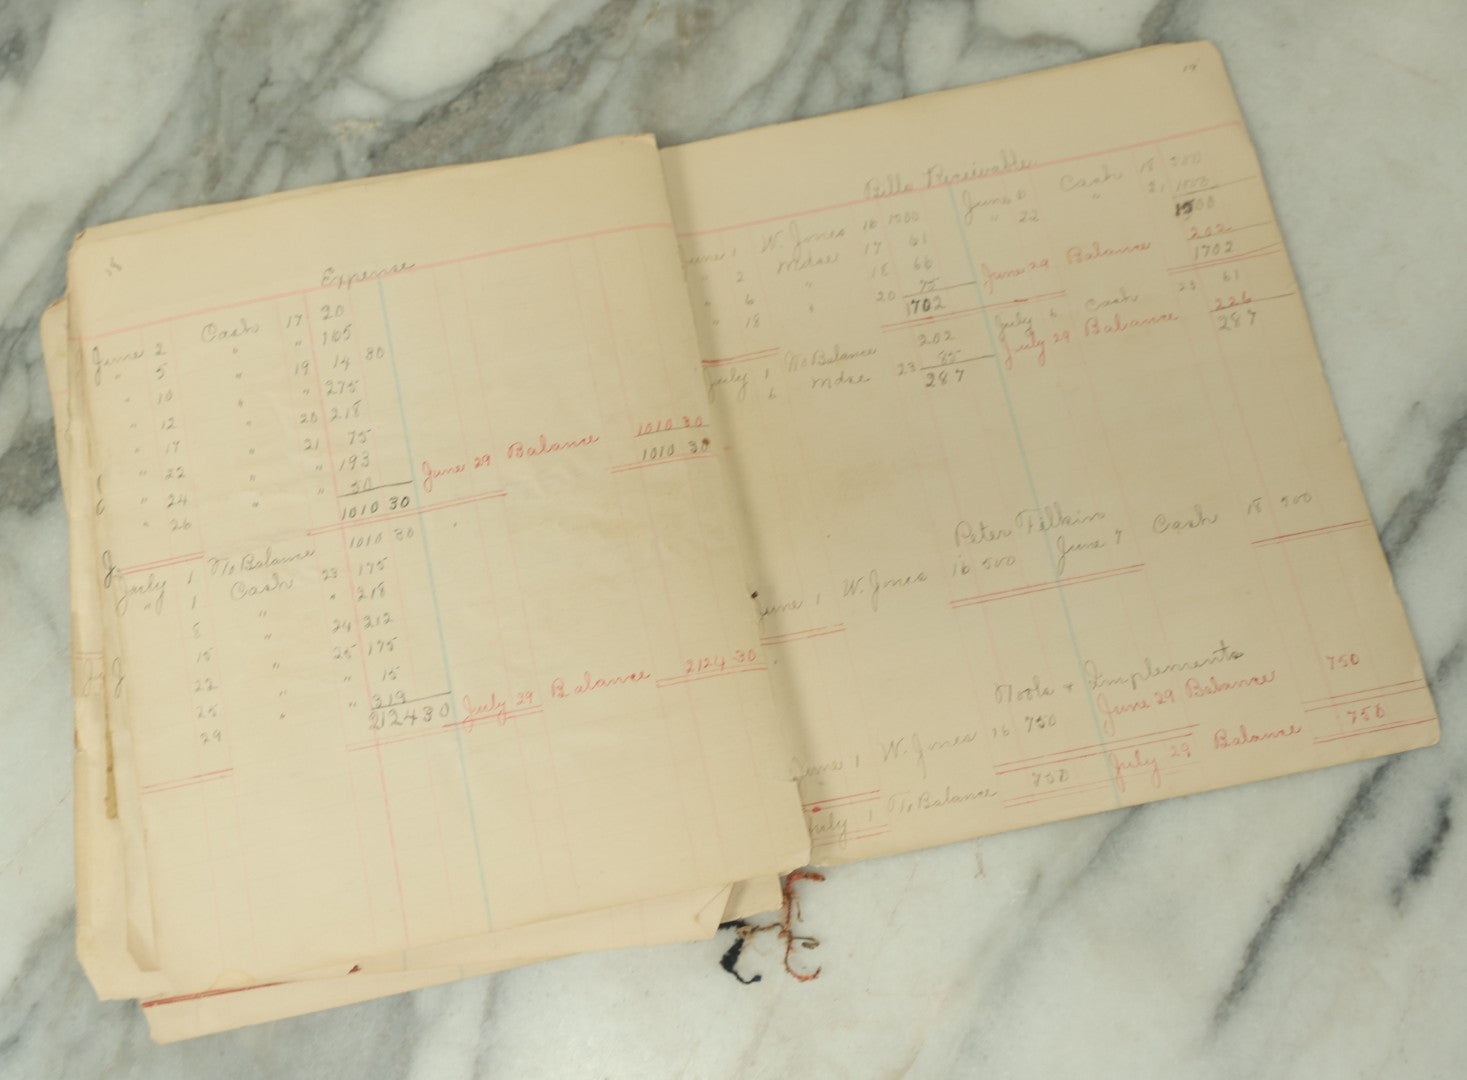 18
Expense
June 2 Cash 17 20
" 5 " " 105
" 10 " 19 14 80
" 12 " " 275
" 17 " 20 218
" 22 " 21 75
" 24 " " 193
" 26 " " 30 June 29 Balance 1010 30
1010 30 1010 30
July 1 To Balance 1010 30
" 1 Cash 23 175
8 " " 218
15 " 24 212
22 " 25 175
25 " " 15
29 " " 319 July 29 Balance 2124 30
2124 30
Bills Receivable
June 1 W. Jones 16 1500 June 6 Cash 18 500
" 2 Mdse 17 61 " 22 " 21 1000
" 6 " 18 66 1500
" 18 " 20 75 June 29 Balance 202
1702 1702
July 1 To Balance 202 July 6 Cash 23 61
6 Mdse 23 85 July 29 Balance 226
287 287
Peter Filkins
June 1 W. Jones 16 500 June 7 Cash 18 500
Tools + Implements
June 1 W. Jones 16 750 June 29 Balance 750
July 1 To Balance 750 July 29 Balance 750